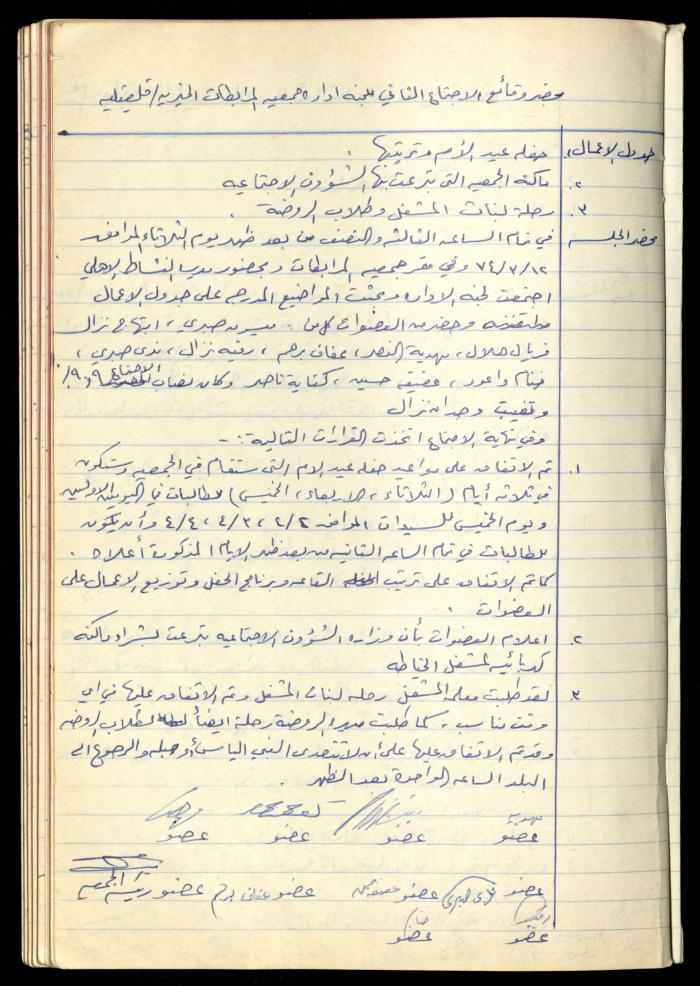 محضر وقائع الاجتماع الثاني للجنه اداره جمعيه المرابطات الخيريه / قلقيليه
جدول الاعمال ١. حفله عيد الأم وترتيبها .
٢. ماكنة الجمعيه التي تبرعت بها الشؤون الاجتماعيه
٣. رحلة لبنات المشغل وطلاب الروضة .
محضر الجلسه في تمام الساعه الثالثه والنصف من بعد ظهر يوم الثلاثاء الموافق
٧٤/٣/١٢ وفي مقر جمعيه المرابطات وبحضور مدير النشاط الاهلي
اجتمعت لجنة الاداره وبحثت المواضيع المدرجه على جدول الاعمال
وحضر من العضوات كل من . ميسر صبري ، ابتهاج نزال
فريال هلال ، مهدية النصر ، عفاف برهم ، رقيه نزال ، ندى صبري ،
ختام داعور ، عفيفه حسين ، كفاية ناصر وكان نصاب الاجتماع ٩٠٪
وتغيبت وجدان نزال
وفي نهاية الاجتماع اتخذت القرارات التالية : -
١. تم الاتفاق على مواعيد حفله عيد الام التي ستقام في الجمعيه وستكون
في ثلاثه أيام ( الثلاثاء ، الاربعاء ، الخميس ) للطالبات في اليومين الاولين
ويوم الخميس للسيدات الموافق ٤/٢ ، ٤/٣ ، ٤/٤ وأن يكون
للطالبات في تمام الساعه الثانيه من بعد ظهر الايام المذكورة أعلاه .
كما تم الاتفاق على ترتيب القاعه وبرنامج الحفل وتوزيع الاعمال على
العضوات .
٢. اعلام العضوات بأن وزاره الشؤون الاجتماعيه تبرعت بشراء ماكنه
كهربائيه لمشغل الخياطه
٣. لقد طلبت معلمه المشغل رحله لبنات المشغل وتم الاتفاق عليها في اي
وقت مناسب ، كما طلبت مديرة الروضة رحلة ايضاً لطلاب الروضه
وقد تم الاتفاق عليها على ان لا تتعدى النبي الياس أو جبله والرجوع الى
البلد الساعه الواحدة بعد الظهر .
مهديه
عضو عضو عضو عضو
عضو ندى صبري عضو عفيفه عضو عفاف برهم عضو رئيسه الجمعيه
عضو ختام عضو